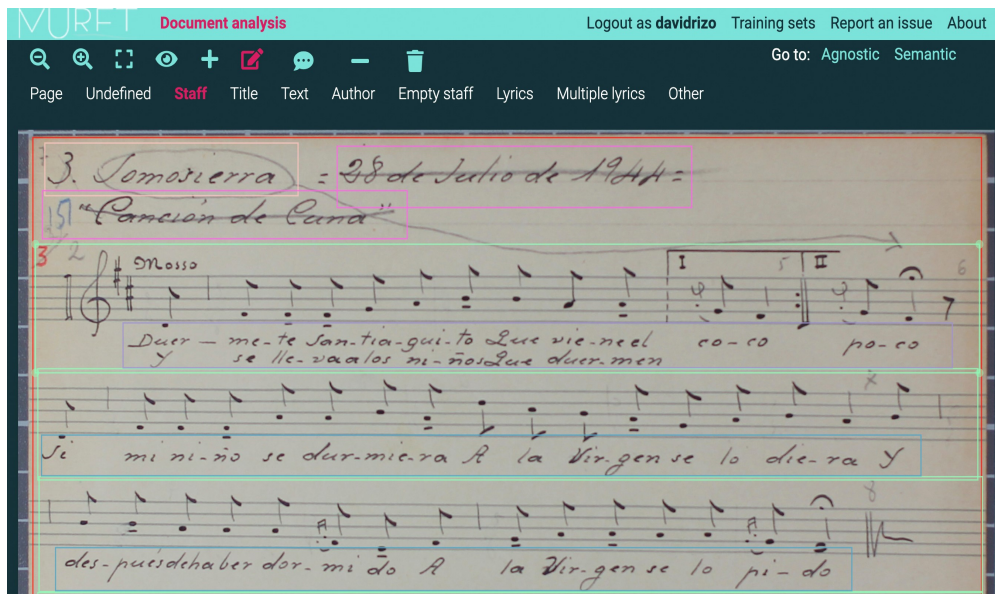 MURET Document analysis Logout as davidrizo Training sets Report an issue About
Go to: Agnostic Semantic
Page Undefined Staff Title Text Author Empty staff Lyrics Multiple lyrics Other
3. Somosierra = 28 de Julio de 1944=
"Canción de Cuna"
3 2 Mosso I 5 II 6
Duer - me-te San-tia-gui-to Que vie-ne el co-co po-co
Y se lle-va a los ni-ños Que duer-men
Si mi ni-ño se dur-mie-ra A la Vir-gen se lo die-ra Y
8
des-pués de haber dor-mi do A la Vir-gen se lo pi-do